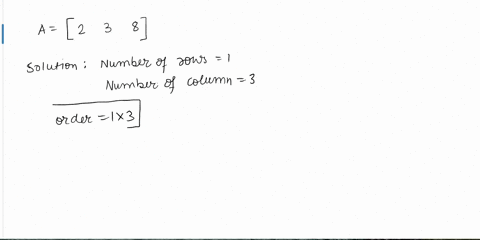 A = [ 2 3 8 ]
Solution : Number of rows = 1
Number of column = 3
order = 1 × 3